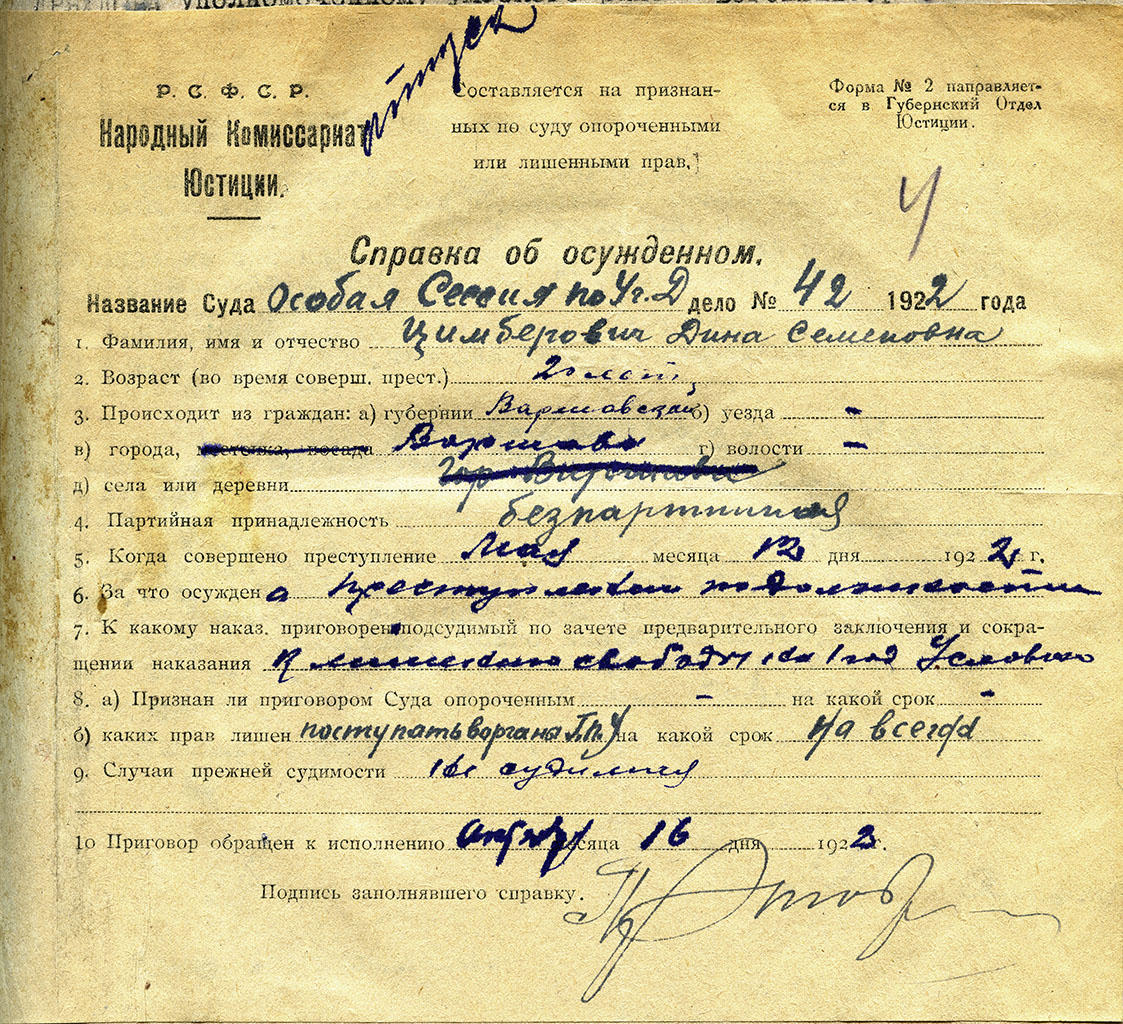 отпуск
Р. С. Ф. С. Р.
Народный Комиссариат
Юстиции.
Составляется на признан-
ных по суду опороченными
или лишенными прав.
Форма № 2 направляет-
ся в Губернский Отдел
Юстиции.
Справка об осужденном.
Название Суда Особая Сессия по Уг. Д дело № 42 1922 года
1. Фамилия, имя и отчество Цимберович Дина Семеновна
2. Возраст (во время соверш. прест.) 20 лет
3. Происходит из граждан: а) губернии Варшавской б) уезда -
в) города, местечка, посада Варшава г) волости -
д) села или деревни гор Варшава
4. Партийная принадлежность безпартийная
5. Когда совершено преступление Мая месяца 12 дня 1922 г.
6. За что осужден а преступлении по должности
7. К какому наказ. приговорен подсудимый по зачете предварительного заключения и сокра-
щении наказания к лишению свободы на 1 год Условно
8. а) Признан ли приговором Суда опороченным - на какой срок -
б) каких прав лишен поступать в органа Г.П.У на какой срок на всегда
9. Случаи прежней судимости не судимая
10 Приговор обращен к исполнению Октября месяца 16 дня 1922 г.
Подпись заполнявшего справку.